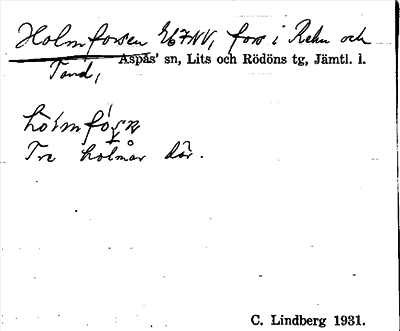 Holmforsen 2b7NV, fors i Rehn och
Tand,
Aspås' sn, Lits och Rödöns tg, Jämtl. l.
Tre holmar där.
C. Lindberg 1931.